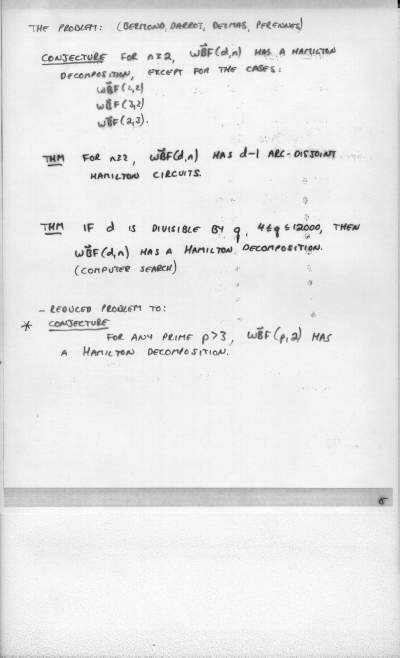 THE PROBLEM: (BERMOND, DARROT, DELMAS, PERENNES)
CONJECTURE FOR n≥2, WB⃗F(d,n) HAS A HAMILTON
DECOMPOSITION, EXCEPT FOR THE CASES:
WB⃗F(2,2)
WB⃗F(3,2)
WB⃗F(2,3).
THM FOR n≥2, WB⃗F(d,n) HAS d-1 ARC-DISJOINT
HAMILTON CIRCUITS.
THM IF d IS DIVISIBLE BY q, 4≤q≤12000, THEN
WB⃗F(d,n) HAS A HAMILTON DECOMPOSITION.
(COMPUTER SEARCH)
- REDUCED PROBLEM TO:
* CONJECTURE
FOR ANY PRIME p>3, WB⃗F(p,2) HAS
A HAMILTON DECOMPOSITION.
5